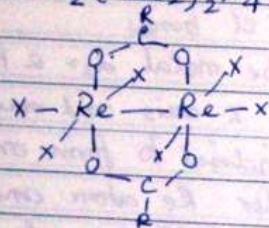 R
C
O O X X
X - Re - Re - X
X X
O O
C
R